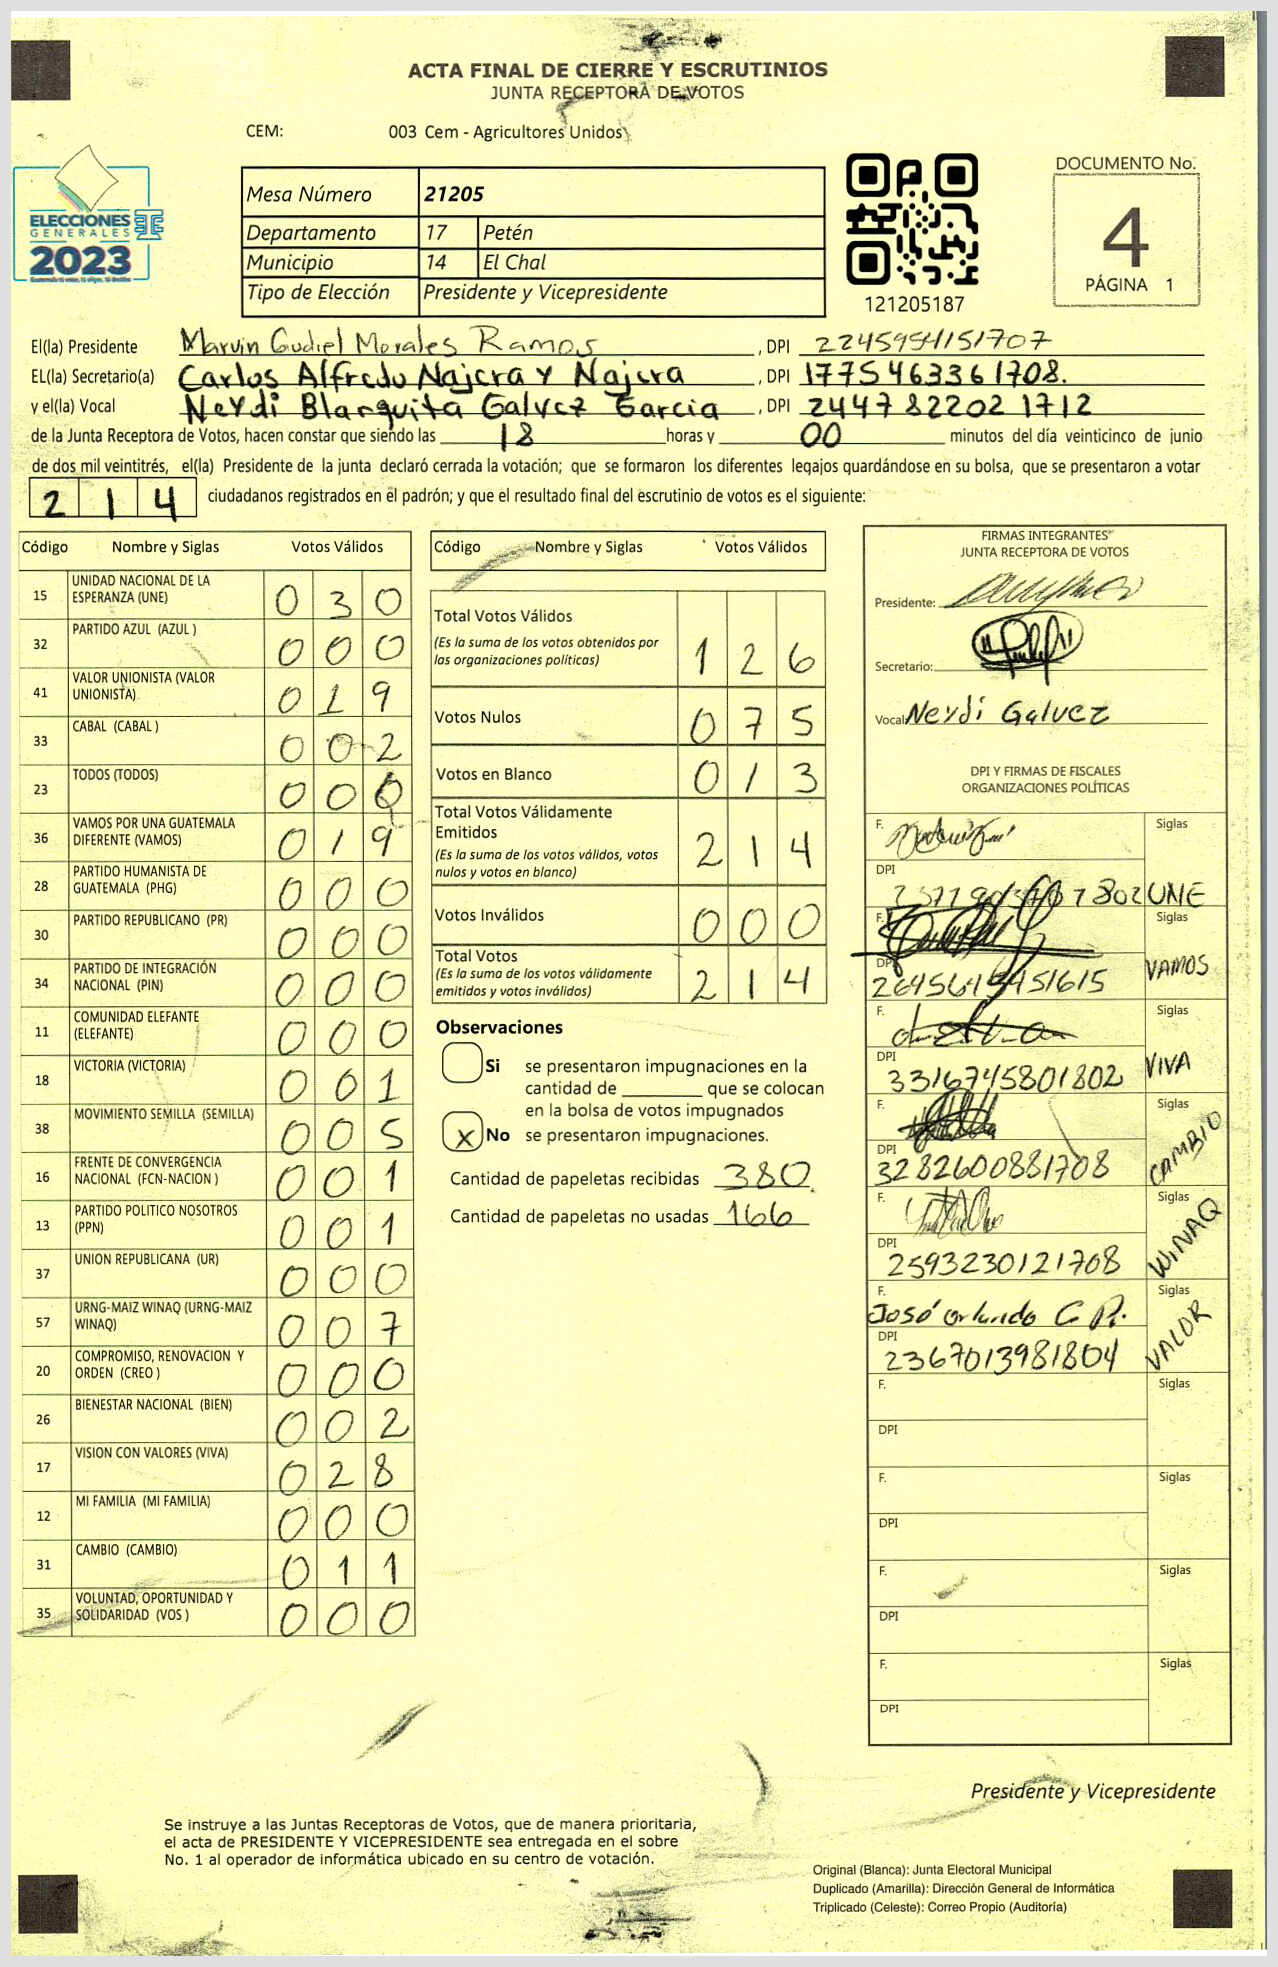 ACTA FINAL DE CIERRE Y ESCRUTINIOS
JUNTA RECEPTORA DE VOTOS
CEM: 003 Cem - Agricultores Unidos
ELECCIONES
GENERALES
2023
Mesa Número 21205
Departamento 17 Petén
Municipio 14 El Chal
Tipo de Elección Presidente y Vicepresidente
121205187
DOCUMENTO No.
4
PÁGINA 1
El(la) Presidente Marvin Gudiel Morales Ramos, DPI
EL(la) Secretario(a) Carlos Alfredo Najera y Najera, DPI 1775463361708.
y el(la) Vocal Neydi Blanquita Galvez Garcia, DPI 2447822021712
de la Junta Receptora de Votos, hacen constar que siendo las 18 horas y 00 minutos del día veinticinco de junio
de dos mil veintitrés, el(la) Presidente de la junta declaró cerrada la votación; que se formaron los diferentes legajos guardándose en su bolsa, que se presentaron a votar
214 ciudadanos registrados en el padrón; y que el resultado final del escrutinio de votos es el siguiente:
Código Nombre y Siglas Votos Válidos
15 UNIDAD NACIONAL DE LA ESPERANZA (UNE) 030
32 PARTIDO AZUL (AZUL ) 000
41 VALOR UNIONISTA (VALOR UNIONISTA) 019
33 CABAL (CABAL ) 002
23 TODOS (TODOS) 000
36 VAMOS POR UNA GUATEMALA DIFERENTE (VAMOS) 019
28 PARTIDO HUMANISTA DE GUATEMALA (PHG) 000
30 PARTIDO REPUBLICANO (PR) 000
34 PARTIDO DE INTEGRACIÓN NACIONAL (PIN) 000
11 COMUNIDAD ELEFANTE (ELEFANTE) 000
18 VICTORIA (VICTORIA) 001
38 MOVIMIENTO SEMILLA (SEMILLA) 005
16 FRENTE DE CONVERGENCIA NACIONAL (FCN-NACION ) 001
13 PARTIDO POLITICO NOSOTROS (PPN) 001
37 UNION REPUBLICANA (UR) 000
57 URNG-MAIZ WINAQ (URNG-MAIZ WINAQ) 007
20 COMPROMISO, RENOVACION Y ORDEN (CREO ) 000
26 BIENESTAR NACIONAL (BIEN) 002
17 VISION CON VALORES (VIVA) 028
12 MI FAMILIA (MI FAMILIA) 000
31 CAMBIO (CAMBIO) 011
35 VOLUNTAD, OPORTUNIDAD Y SOLIDARIDAD (VOS ) 000
Código Nombre y Siglas Votos Válidos
Total Votos Válidos
(Es la suma de los votos obtenidos por
las organizaciones políticas) 126
Votos Nulos 075
Votos en Blanco 013
Total Votos Válidamente
Emitidos
(Es la suma de los votos válidos, votos
nulos y votos en blanco) 214
Votos Inválidos 000
Total Votos
(Es la suma de los votos válidamente
emitidos y votos inválidos) 214
Observaciones
Si se presentaron impugnaciones en la
cantidad de ________ que se colocan
en la bolsa de votos impugnados
x No se presentaron impugnaciones.
Cantidad de papeletas recibidas 380
Cantidad de papeletas no usadas 166
FIRMAS INTEGRANTES
JUNTA RECEPTORA DE VOTOS
Presidente:
Secretario:
Vocal: Neydi Galvez
DPI Y FIRMAS DE FISCALES
ORGANIZACIONES POLÍTICAS
F. Siglas
DPI UNE
F. Siglas
DPI VAMOS
F. Siglas
DPI 3316745801802 VIVA
F. Siglas
DPI 3282600881708 CAMBIO
F. Siglas
DPI 2593230121708 WINAQ
F. José Orlando C R. Siglas
DPI 2367013981804 VALOR
F. Siglas
DPI
F. Siglas
DPI
F. Siglas
DPI
F. Siglas
DPI
Presidente y Vicepresidente
Se instruye a las Juntas Receptoras de Votos, que de manera prioritaria,
el acta de PRESIDENTE Y VICEPRESIDENTE sea entregada en el sobre
No. 1 al operador de informática ubicado en su centro de votación.
Original (Blanca): Junta Electoral Municipal
Duplicado (Amarilla): Dirección General de Informática
Triplicado (Celeste): Correo Propio (Auditoría)